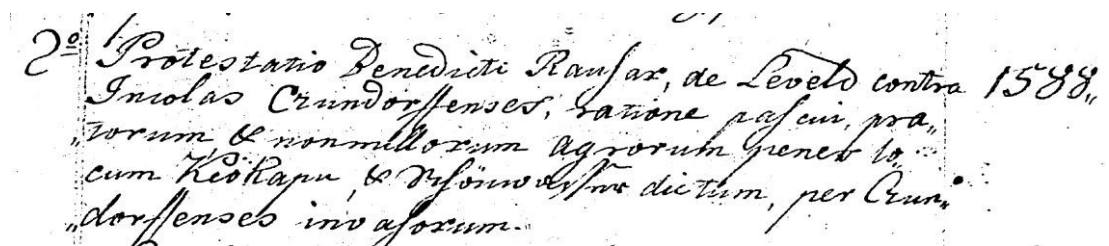 2º Protestatio Benedicti Kausar, de Leveld contra 1588„
Incolas Crundorffenses, ratione pascui, pra„
„torum, & nonnullorum agrorum penes lo„
cum Keökapu, & Schönwasser dictum, per Crun„
„dorffenses invasorum.